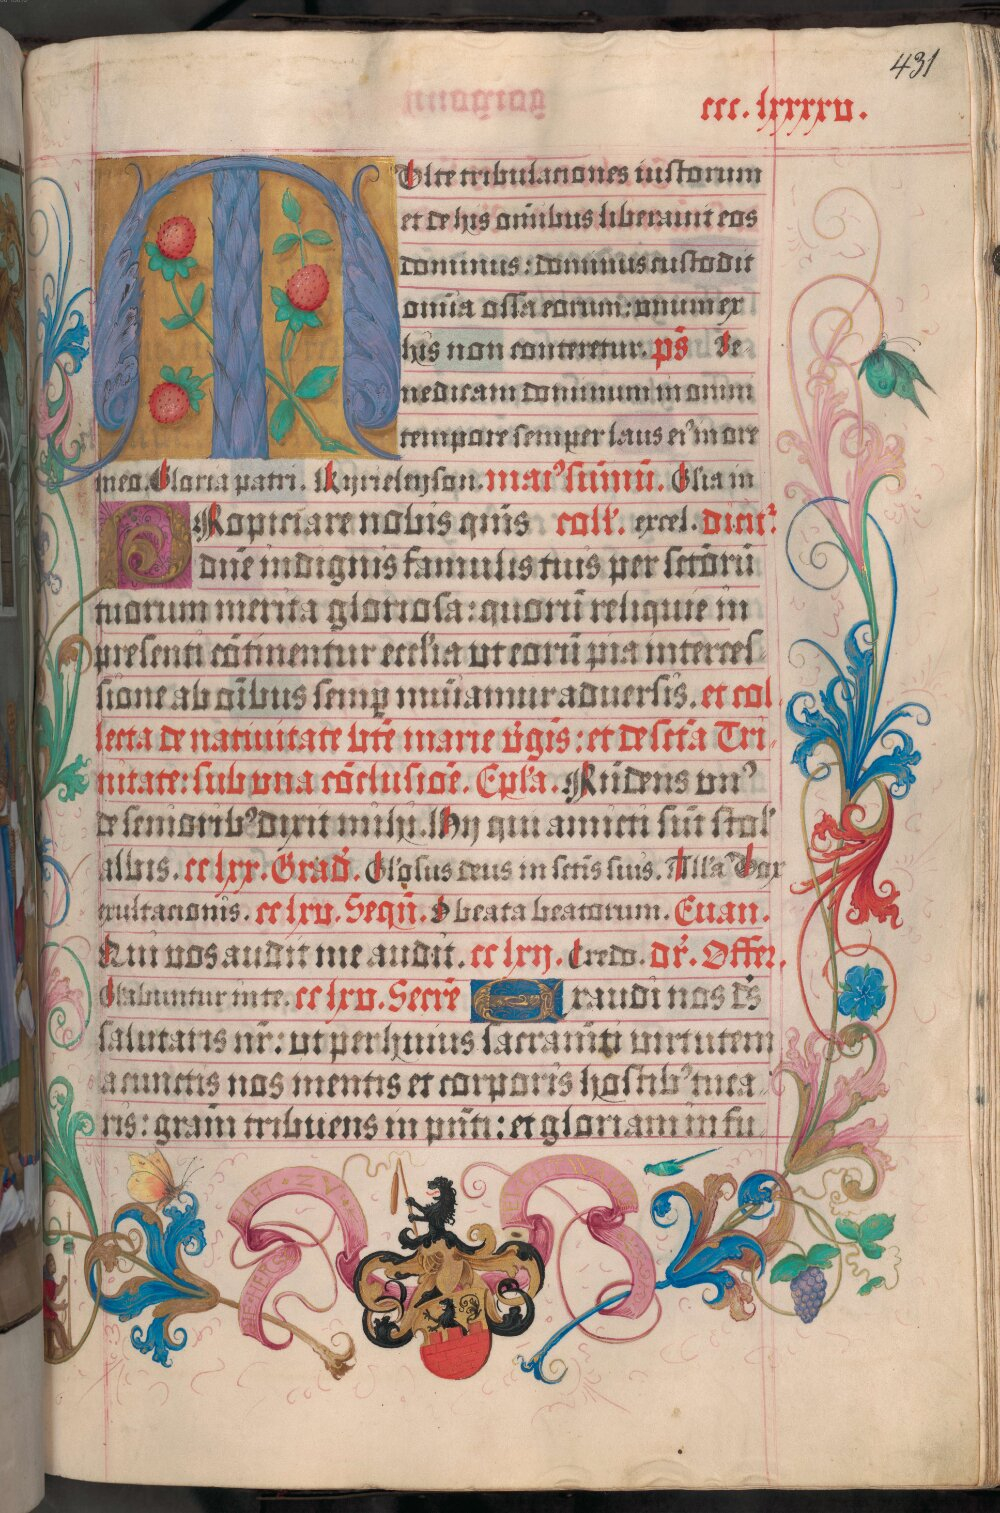 431
ccc. lxxxxv.
Multe tribulaciones iustorum
et de his om̄ibus liberauit eos
dominus: dominus custodit
om̄ia ossa eorum: vnum ex
his non conteretur. ps̄ Be
nedicam dominum in omni
tempore semper laus eiꝰ in ore
meo. Gloria patri. Kyrieleyson. Gl̄ia in
excel. dicit᷑
PRopiciare nobis q̄us coll̄.
dn̄e indignis famulis tuis per sc̄torū
tuorum merita gloriosa: quorū reliquie in
presenti cōtinentur eccl̄ia ut eorū pia interces
sione ab oībus semꝑ mūiamur aduersis. et col
lecta de natiuitate bt̄e marie v̄gīs: et de sc̄tā Tri
nitate: sub vna cōclusiōe. Ep̄la. Rn̄dens vnꝰ
de senioribꝰ dixit michi. Hij qui amicti sūt stol̄
albis. cc lxx. Grad̄. Gl̄osus deus in sc̄tis suis. All̄a Vox
exultacionis. cc lxv. Seqū. O beata beatorum. Euan.
Qui vos audit me audit. cc lxij. Credo. dr̄. Offer.
Gl̄abuntur in te. cc lxv. Secrē Exaudi nos ds̄
salutaris nr̄: ut per huius sacramn̄ti virtutem
a cunctis nos mentis et corporis hostibꝰ tuea
ris: grām tribuens in pn̄ti: et gloriam in fu